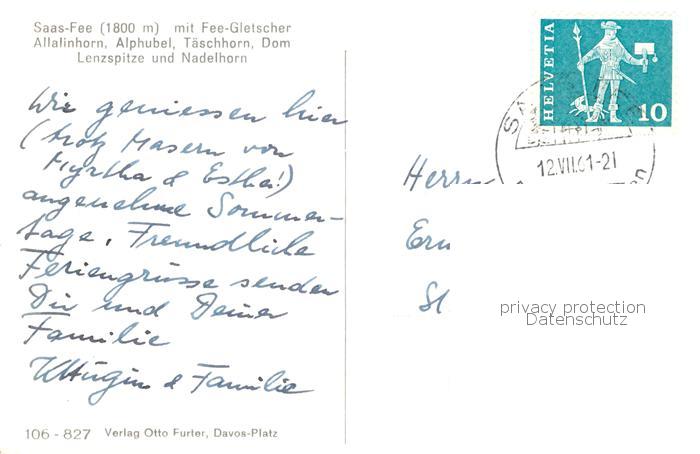 Saas-Fee (1800 m) mit Fee-Gletscher
Allalinhorn, Alphubel, Täschhorn, Dom
Lenzspitze und Nadelhorn
Wir geniessen hier
(trotz Masern von
Myrtha & Esther!)
angenehme Sommer-
tage. Freundliche
Feriengrüsse senden
Dir und Deiner
Familie
& Familie
106 - 827 Verlag Otto Furter, Davos-Platz
HELVETIA
10
12.VII.61-21
Herrn
privacy protection
Datenschutz